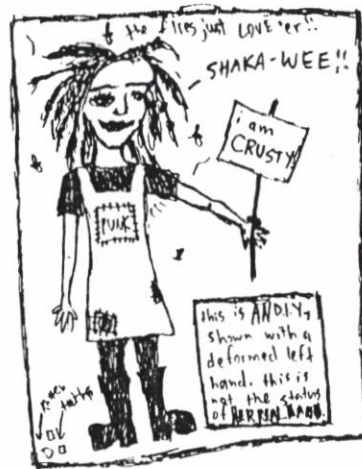 & the flies just LOVE 'er!!
SHAKA-WEE!!
i am
CRUSTY
PUNK
this is ANDI.Y,
shown with a
deformed left
hand. this is
not the status
of HER
teeth